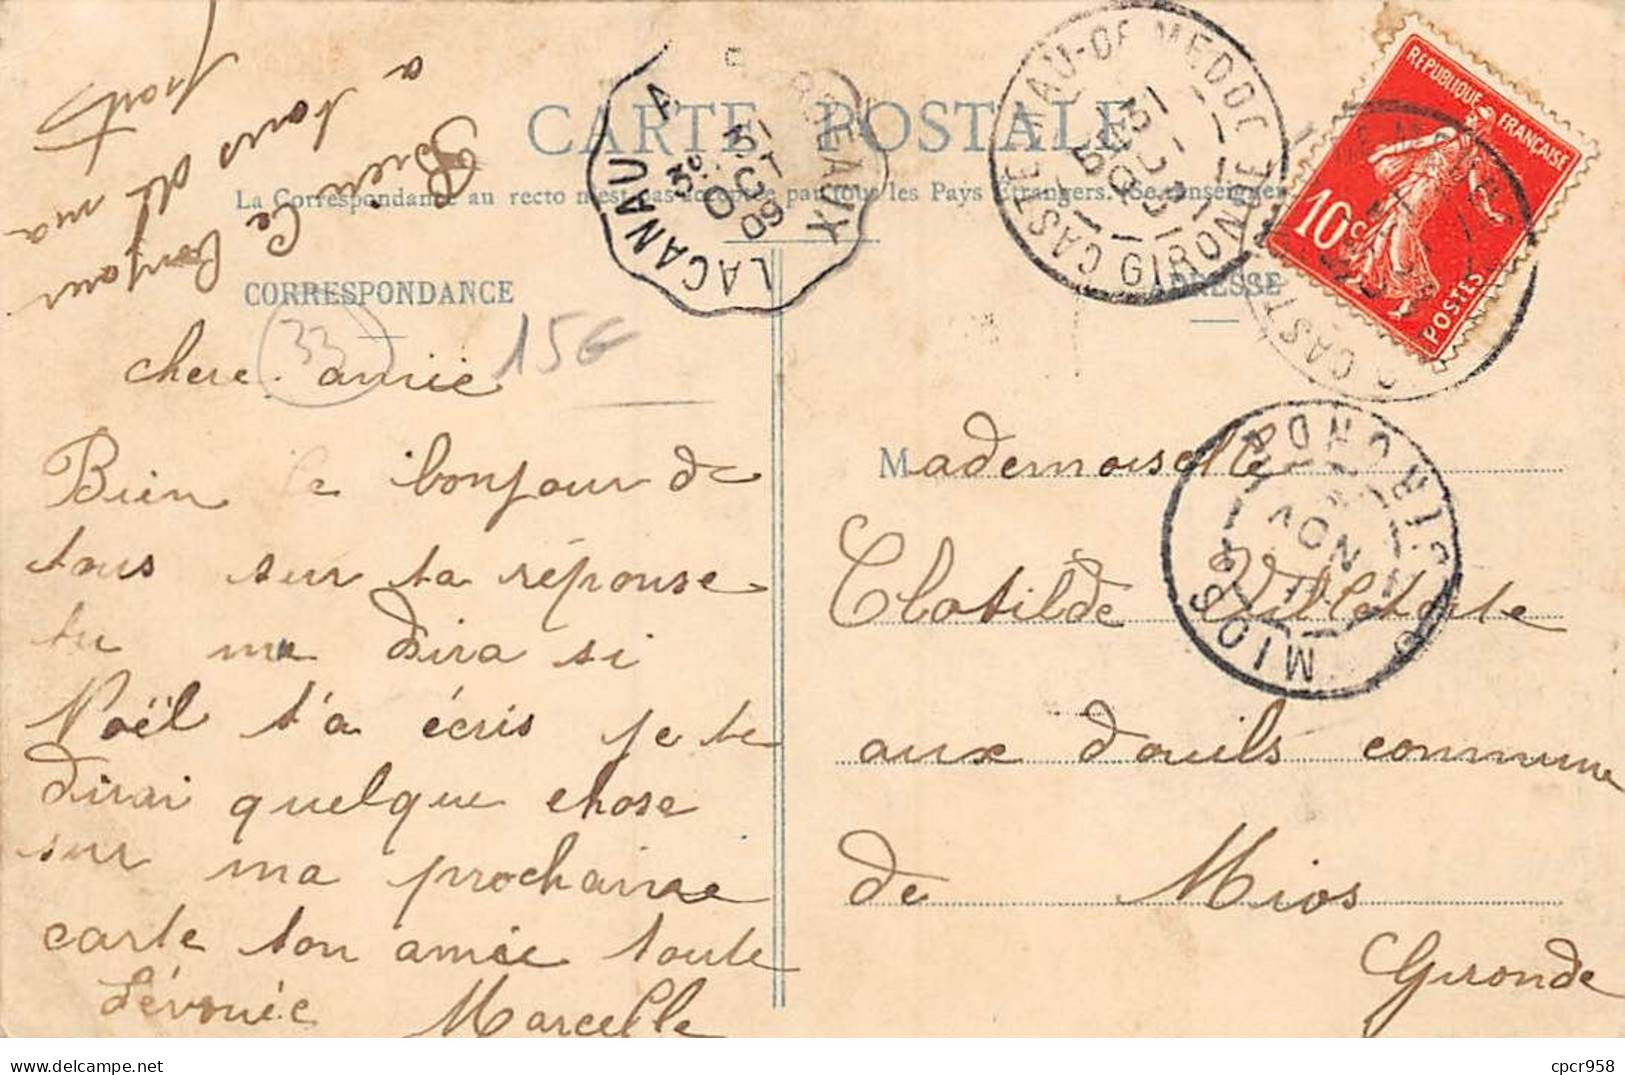 CARTE POSTALE
La Correspondance au recto n'est pas acceptée par tous les Pays Etrangers. (Se renseigner
CORRESPONDANCE
ADRESSE
Bien le bonjour
a tous de ma
part
chere amie
33
15€
Bien le bonjour de
tous sur ta réponse
tu me dira si
Noël t'a écris je te
dirai quelque chose
sur ma prochaine
carte ton amie toute
dévouée Marcelle
Mademoiselle
Clotilde
aux douils commune
de Mios
Gironde
LACANAU A BORDEAUX
3º
31
OCT
09
CASTELNAU-DE MEDOC
GIRONDE
31
OCT
REPUBLIQUE FRANÇAISE
10c
POSTES
MIOS
GIRONDE
NOV
cpcr958